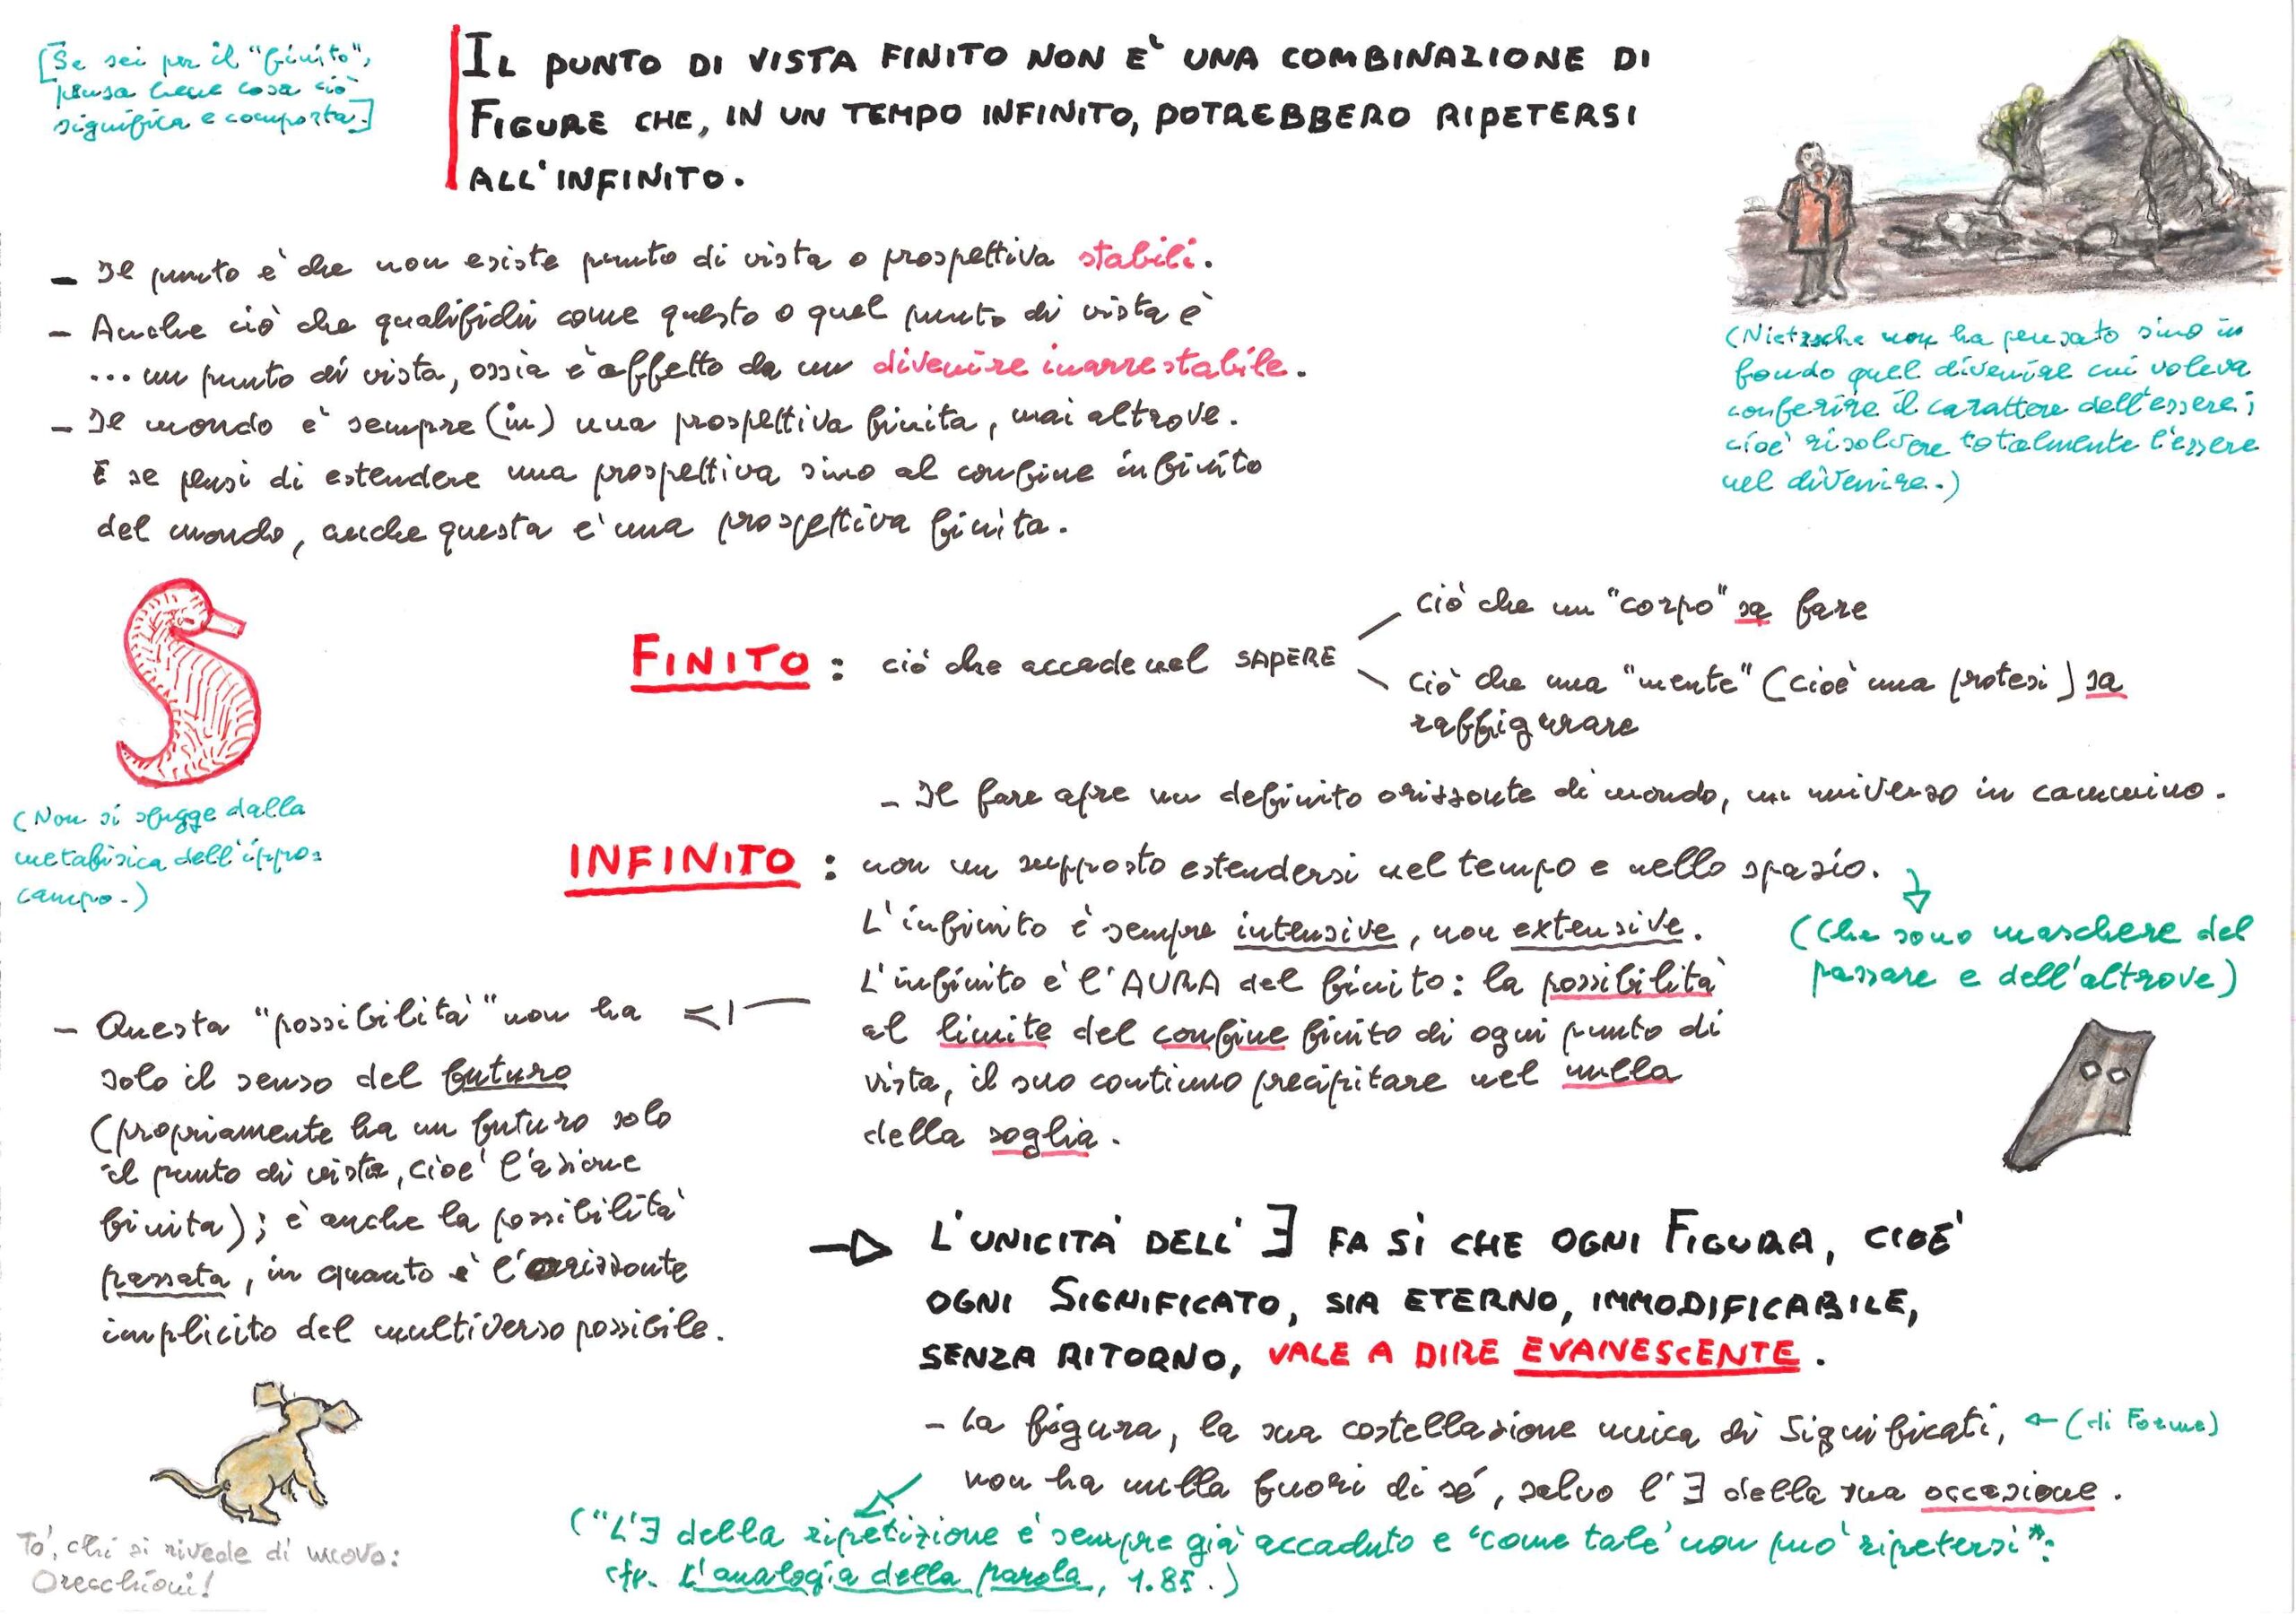 [Se sei per il "finito",
pensa bene cosa ciò
significa e comporta.]
IL PUNTO DI VISTA FINITO NON E' UNA COMBINAZIONE DI
FIGURE CHE, IN UN TEMPO INFINITO, POTREBBERO RIPETERSI
ALL'INFINITO.
- Il punto è che non esiste punto di vista o prospettiva stabili.
- Anche ciò che qualifichi come questo o quel punto di vista è
... un punto di vista, ossia è affetto da un divenire inarrestabile.
- Il mondo è sempre (in) una prospettiva finita, mai altrove.
E se pensi di estendere una prospettiva sino al confine infinito
del mondo, anche questa è una prospettiva finita.
(Nietzsche non ha pensato sino in
fondo quel divenire cui voleva
conferire il carattere dell'essere;
cioè risolvere totalmente l'essere
nel divenire.)
FINITO : ciò che accade nel SAPERE
ciò che un "corpo" sa fare
ciò che una "mente" (cioè una protesi) sa
raffigurare
(Non si sfugge dalla
metafisica dell'ippo=
campo.)
- Il fare apre un definito orizzonte di mondo, un universo in cammino.
INFINITO : non un supposto estendersi nel tempo e nello spazio.
(che sono maschere del
passare e dell'altrove)
L'infinito è sempre intensive, non extensive.
L'infinito è l'AURA del finito: la possibilità
al limite del confine finito di ogni punto di
vista, il suo continuo precipitare nel nulla
della soglia.
- Questa "possibilità" non ha
solo il senso del futuro
(propriamente ha un futuro solo
il punto di vista, cioè l'azione
finita); è anche la possibilità
passata, in quanto è l'orizzonte
implicito del multiverso possibile.
L'UNICITÀ DELL'∃ FA SÌ CHE OGNI FIGURA, CIOE'
OGNI SIGNIFICATO, SIA ETERNO, IMMODIFICABILE,
SENZA RITORNO, VALE A DIRE EVANESCENTE.
- La figura, la sua costellazione unica di Significati, ← (di Forme)
non ha nulla fuori di sé, salvo l'∃ della sua occasione.
("L'∃ della ripetizione è sempre già accaduto e 'come tale' non può ripetersi":
cfr. L'analogia della parola, 1.85.)
To', chi si rivede di nuovo:
Orecchioni!